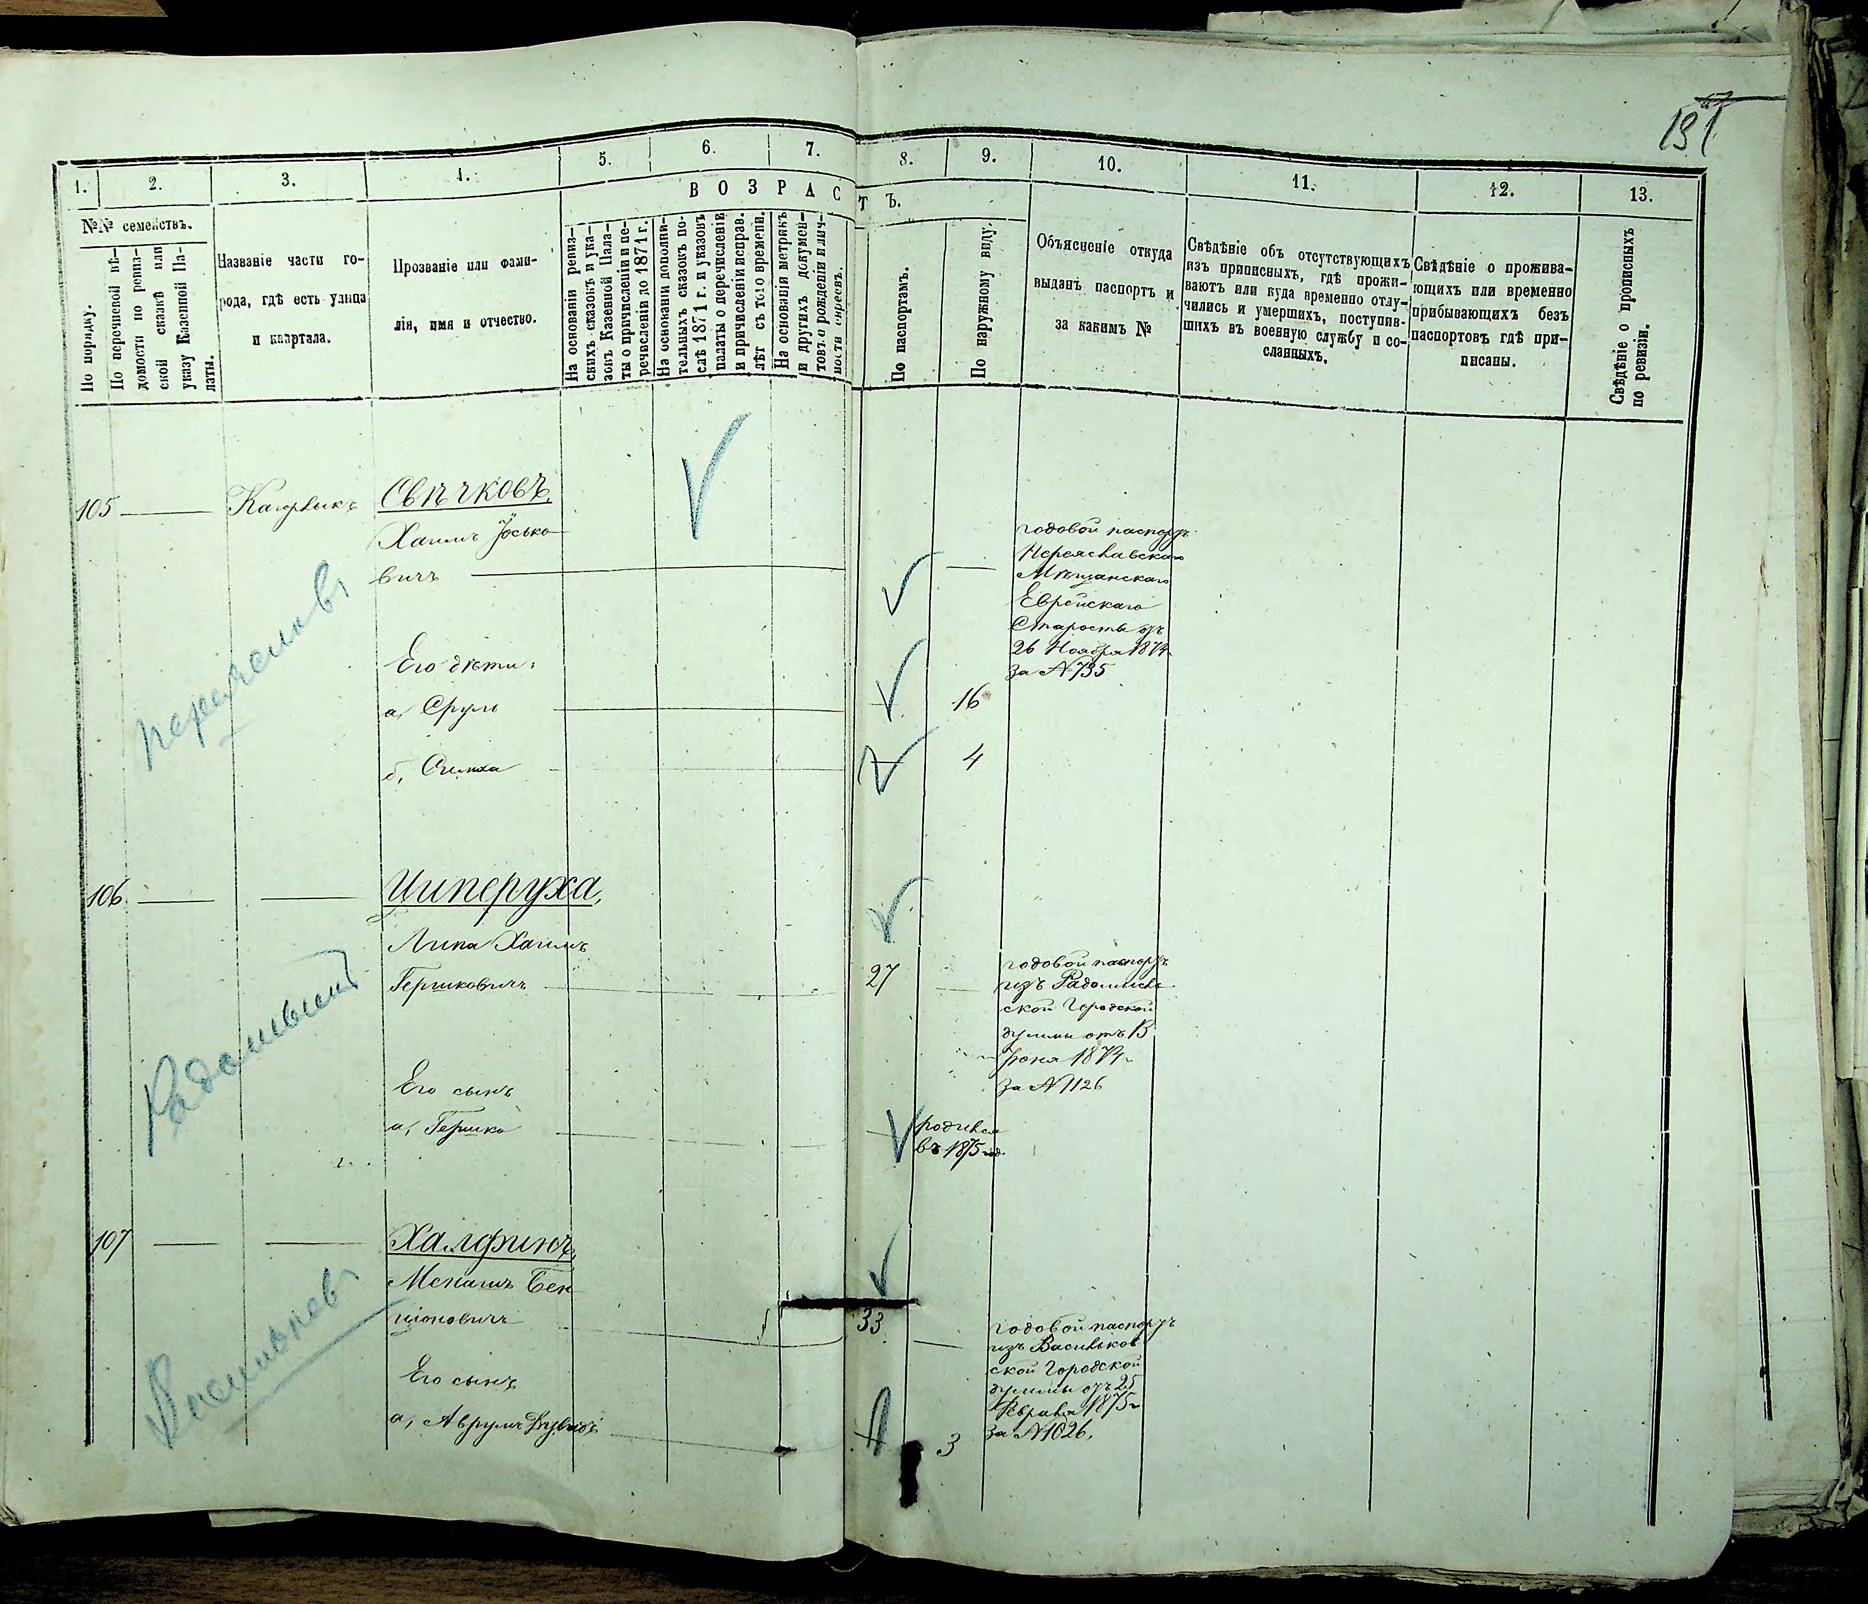 131
1.
2.
3.
4.
5.
6.
7.
8.
9.
10.
11.
12.
13.
ВОЗРАСТЪ.
№№ семействъ.
По порядку.
По перечневой вѣ-
домости по ревиз-
ской сказкѣ или
указу Казенной Па-
латы.
Названіе части го-
рода, гдѣ есть улица
и квартала.
Прозваніе или фами-
лія, имя и отчество.
На основаніи ревиз-
скихъ сказокъ и ука-
зовъ Казенной Пала-
ты о причисленіи и пе-
речисленіи до 1871 г.
На основаніи дополни-
тельныхъ сказокъ по-
слѣ 1871 г. и указовъ
палаты о перечисленіи
и причисленіи исправ.
лѣт съ того времени.
На основаніи метрикъ
и другихъ докумен-
товъ о рожденіи и лич-
ности евреевъ.
По паспортамъ.
По наружному виду.
Объясненіе откуда
выданъ паспортъ и
за какимъ №
Свѣдѣніе объ отсутствующихъ
изъ приписныхъ, гдѣ прожи-
ваютъ или куда временно отлу-
чились и умершихъ, поступив-
шихъ въ военную службу и со-
сланныхъ.
Свѣдѣніе о прожива-
ющихъ или временно
прибывающихъ безъ
паспортовъ гдѣ при-
писаны.
Свѣдѣніе о прописныхъ
по ревизіи.
105
Кагарлыкъ
Свѣчковъ,
Хаимъ Іосько
вичъ
годовой паспортъ
Переяславскаго
Мѣщанскаго
Еврейскаго
Старосты отъ
26 Ноября 1874 г
за № 735
Его дѣти:
а, Сруль
16
б, Симха
4
Переяславъ
106
Циперуха,
Липа Хаимъ
Гершковичъ
27
годовой паспортъ
изъ Радомысль
ской Городской
думы отъ 13
Іюня 1874 г
за № 1126
Его сынъ
а, Гершко
родился
въ 1875 год
Радомысль
107
Халфинъ,
Менашъ Бен
ціоновичъ
33
годовой паспортъ
изъ Васильков
ской Городской
думы отъ 25
Февраля 1875 г
за № 1026,
Его сынъ
а, Аврумъ Дувидъ
3
Васильков